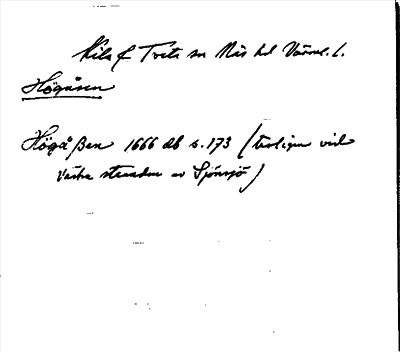 Kila f Tveta sn Näs hd Värml. l.
Högåsen
Högåßen 1666 db s. 173 (troligen vid
västra stranden av Sjönsjö)